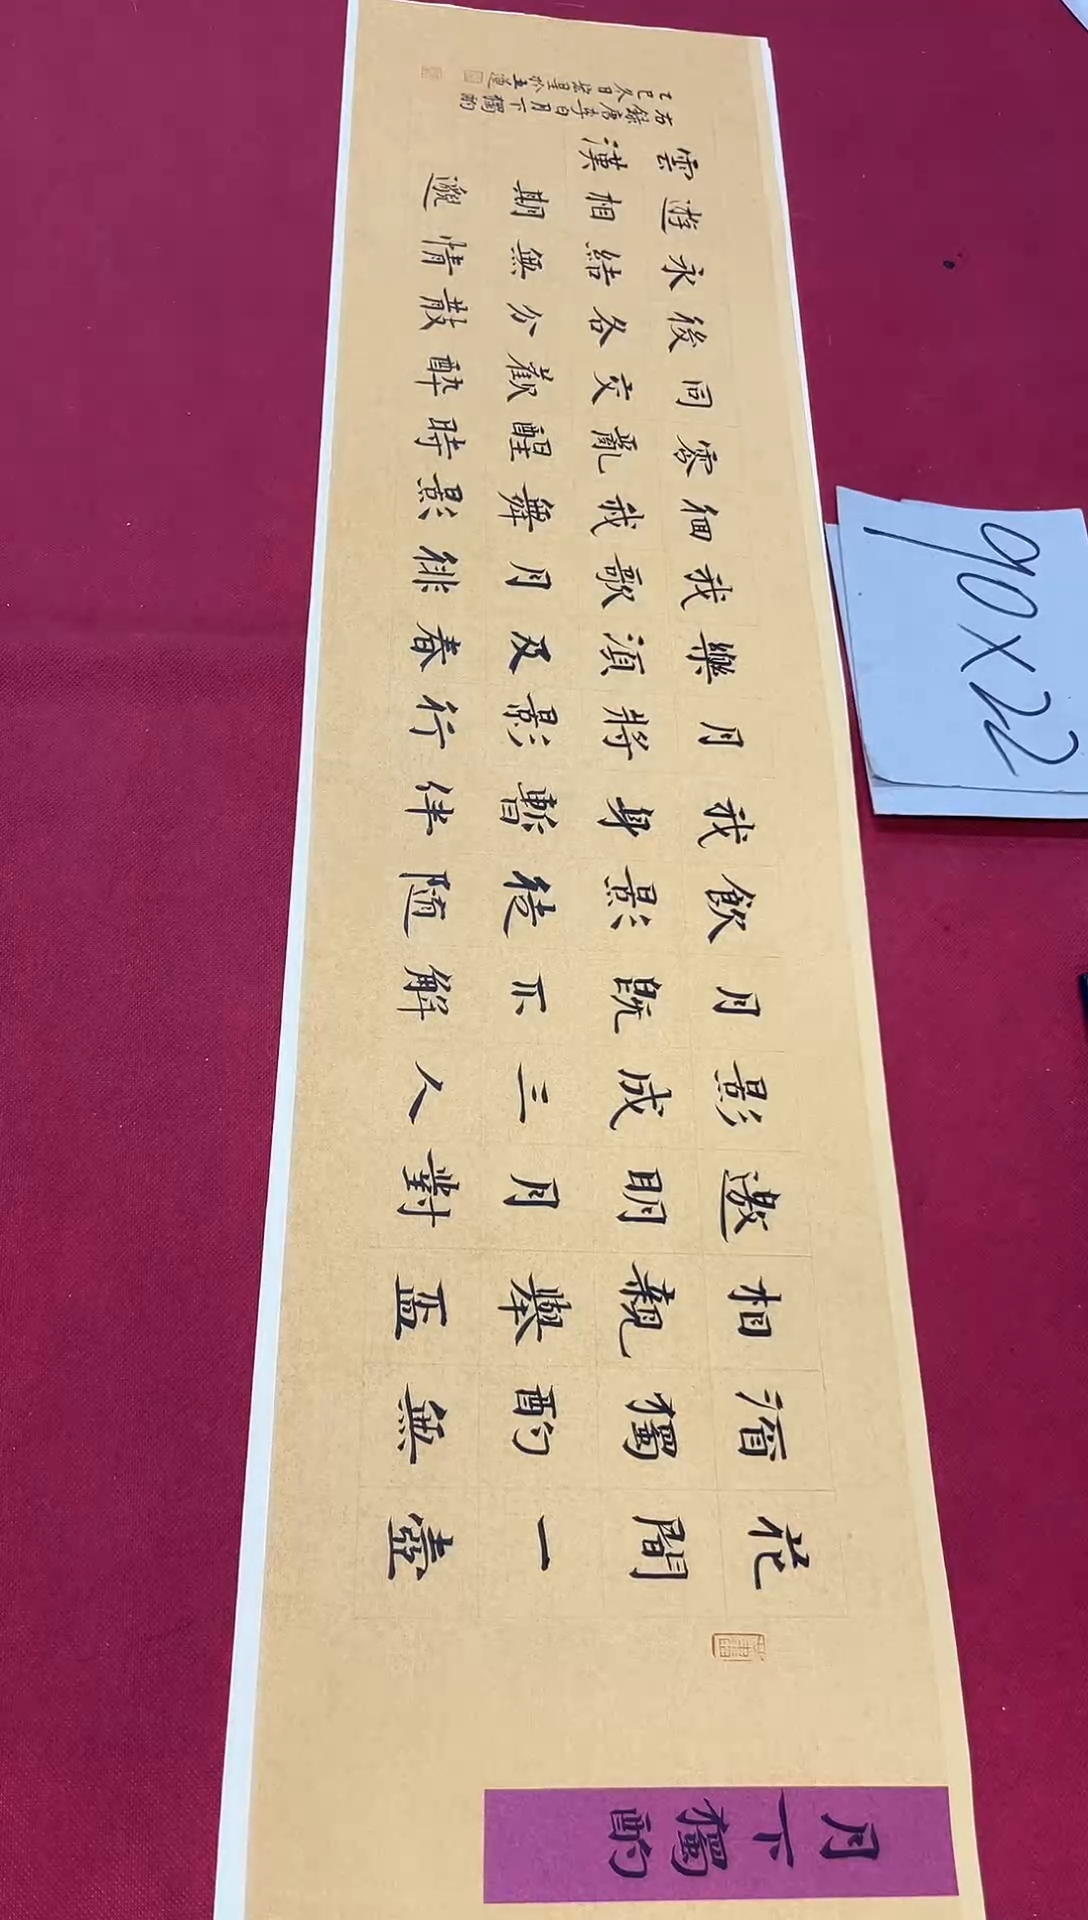 月下獨酌
花間一壺
酒獨酌無
相親舉盃
邀明月對
影成三人
月既不解
飲影徒隨
我身暫伴
月將影行
樂須及春
我歌月徘
徊我舞影
零亂醒時
同交歡醉
後各分散
永結無情
遊相期邈
雲漢
右錄唐李白月下獨酌
乙巳冬日
90×22